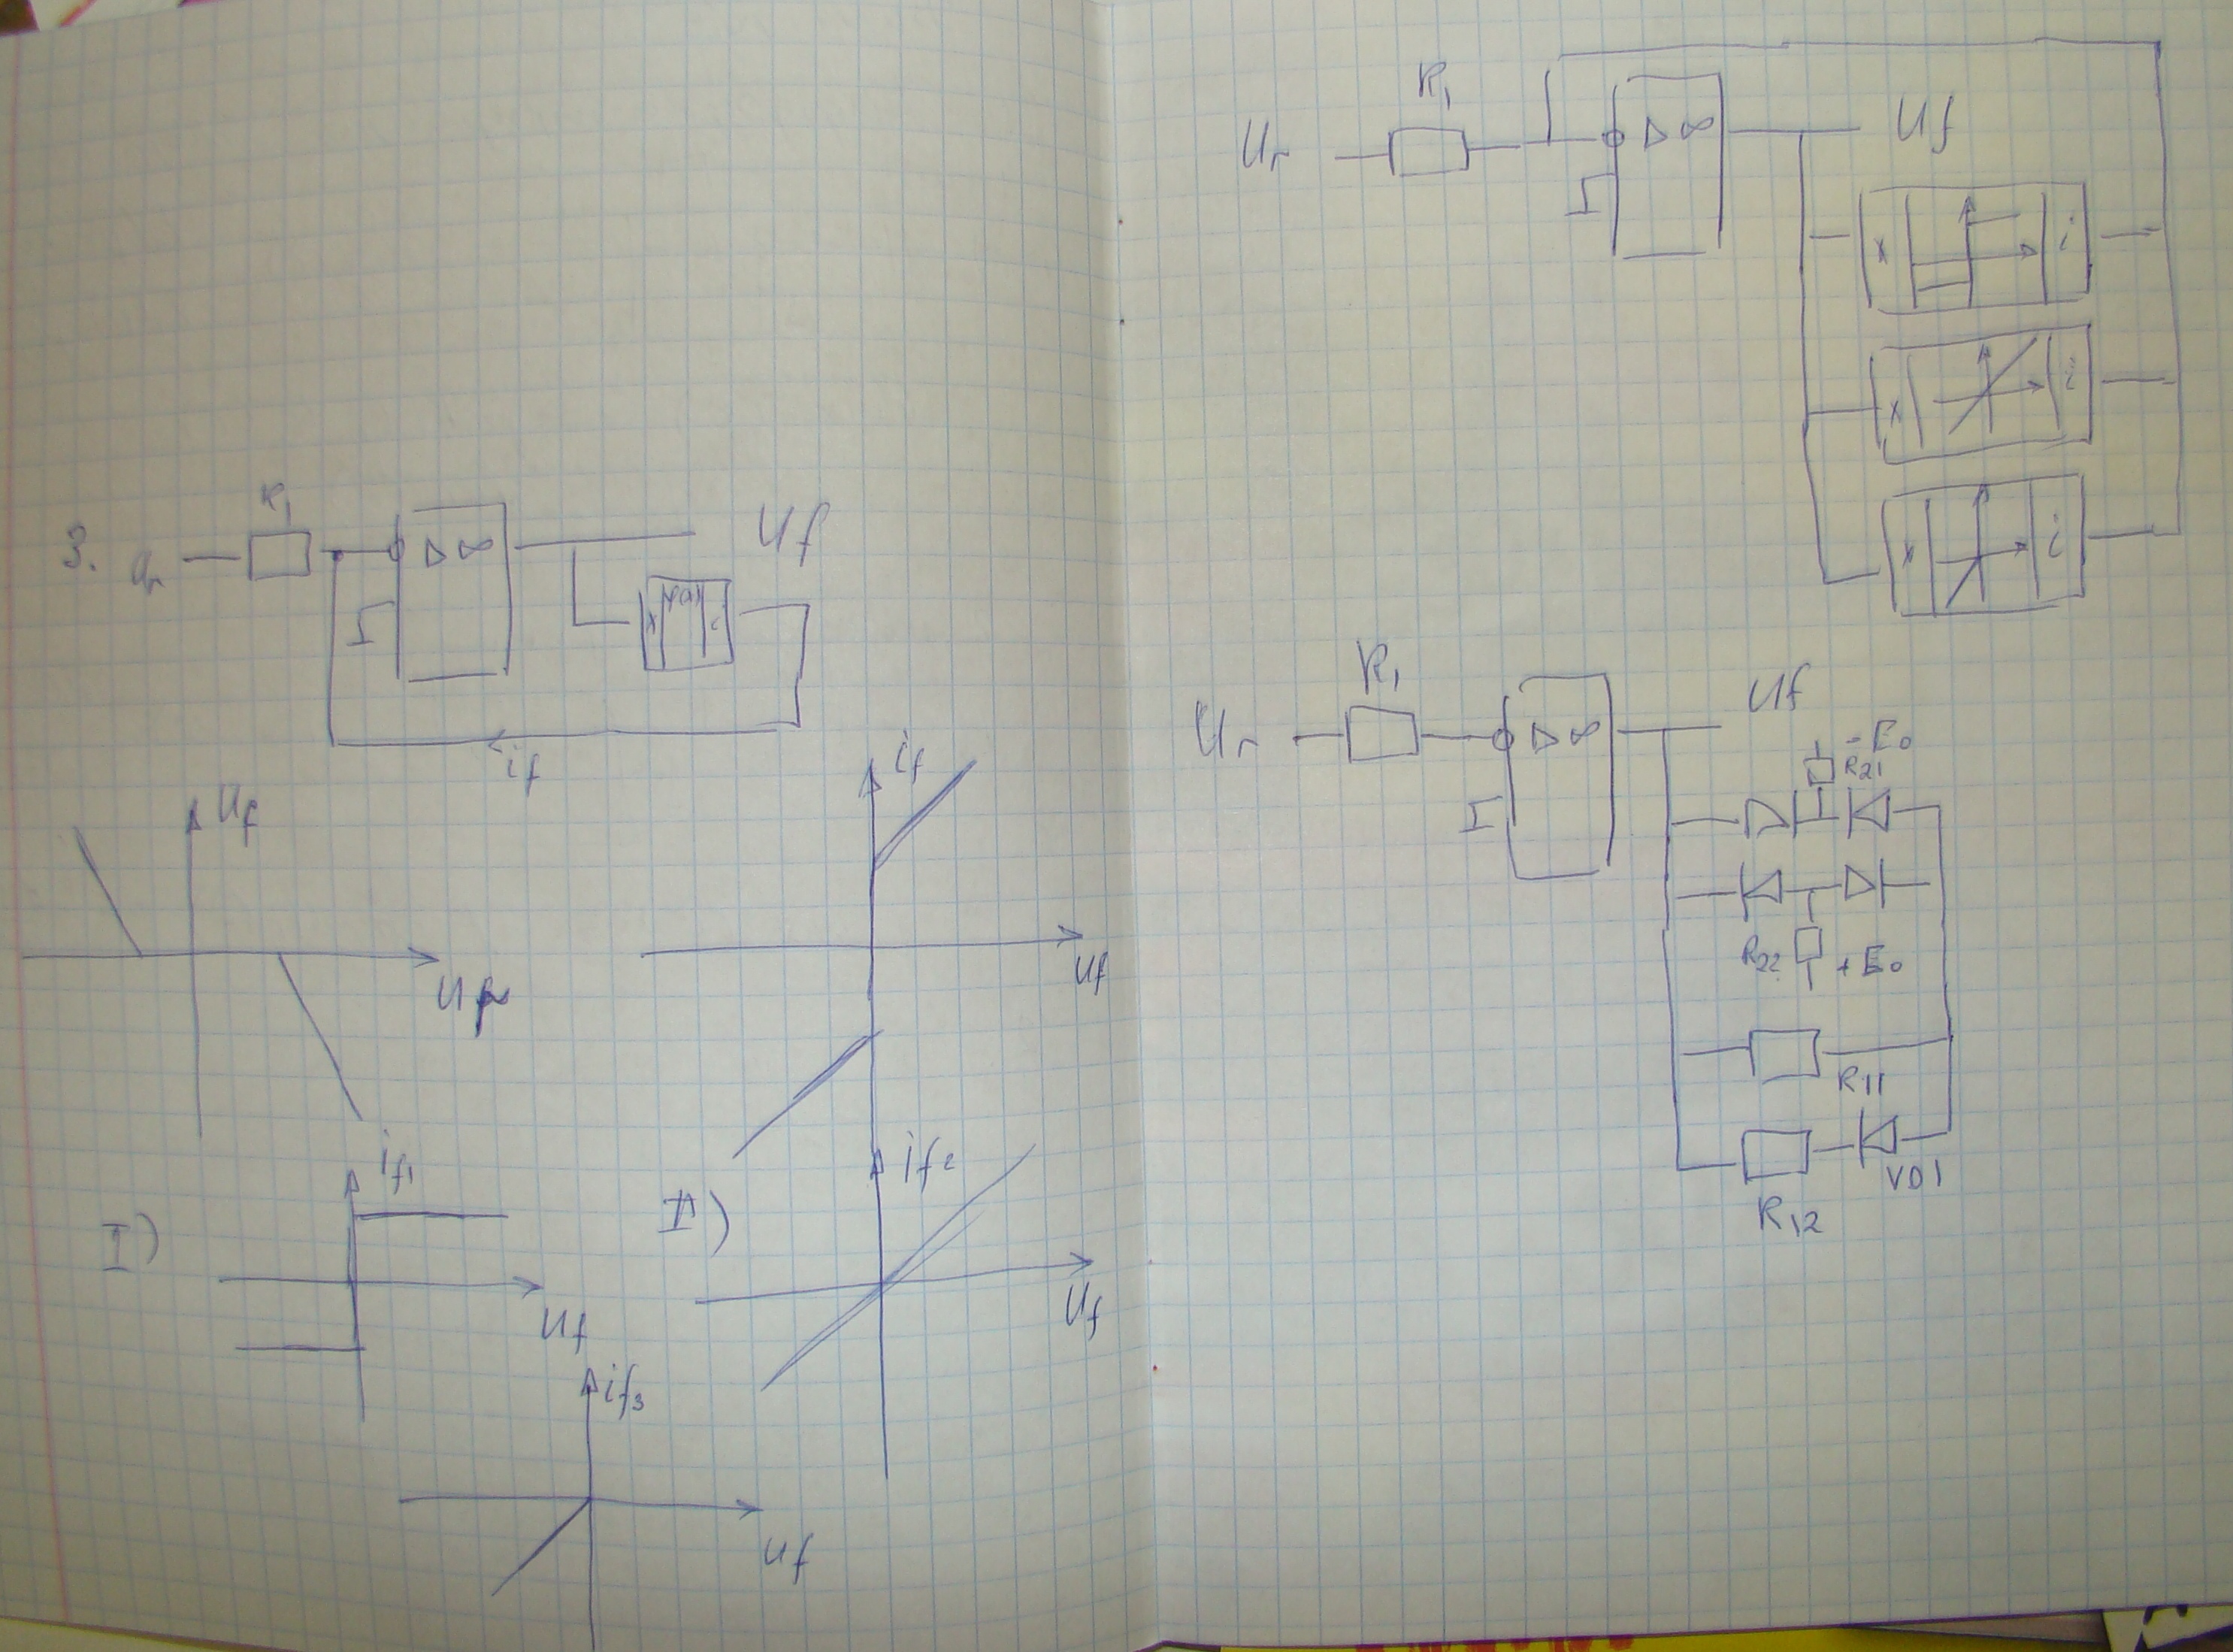 3. Ur R1 ▷ ∞ Uf
x f(x) i
if
Uf
Ur
if
Uf
I) if1
Uf
II) if2
Uf
if3
Uf
Ur R1 ▷ ∞ Uf
x i
x i
x i
Ur R1 ▷ ∞ Uf
-E0
R21
R22 +E0
R11
VD1
R12